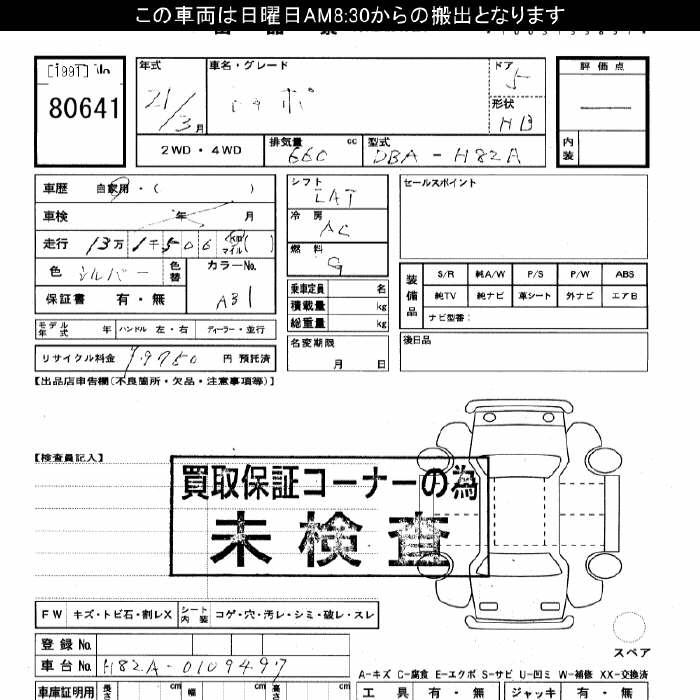 この車両は日曜日AM8:30からの搬出となります
80641
年式
21/3月
車名・グレード
トッポ
ドア
5
形状
HB
評価点
内装
2WD・4WD
排気量
660 cc
型式
DBA-H82A
車歴 自家用・( )
車検 年 月
走行 13万 1千 506 km マイル( )
色 シルバー 色替
カラーNo.
A31
保証書 有・無
シフト
LAT
冷房
AC
燃料
G
乗車定員 名
積載量 kg
総重量 kg
セールスポイント
装備品
S/R 純A/W P/S P/W ABS
純TV 純ナビ 革シート 外ナビ エアB
ナビ型番:
モデル年式 年 ハンドル 左・右 ディーラー・並行
リサイクル料金 円 預託済
名変期限
月 日
後日品
【出品店申告欄(不良箇所・欠品・注意事項等)】
【検査員記入】
買取保証コーナーの為
未検査
FW キズ・トビ石・割レX シート内装 コゲ・穴・汚レ・シミ・破レ・スレ
スペア
登録No.
車台No. H82A-0109497
A-キズ C-腐食 E-エクボ S-サビ U-凹ミ W-補修 XX-交換済
車庫証明用 長さ cm 幅 cm 高さ cm
工具 有・無 ジャッキ 有・無